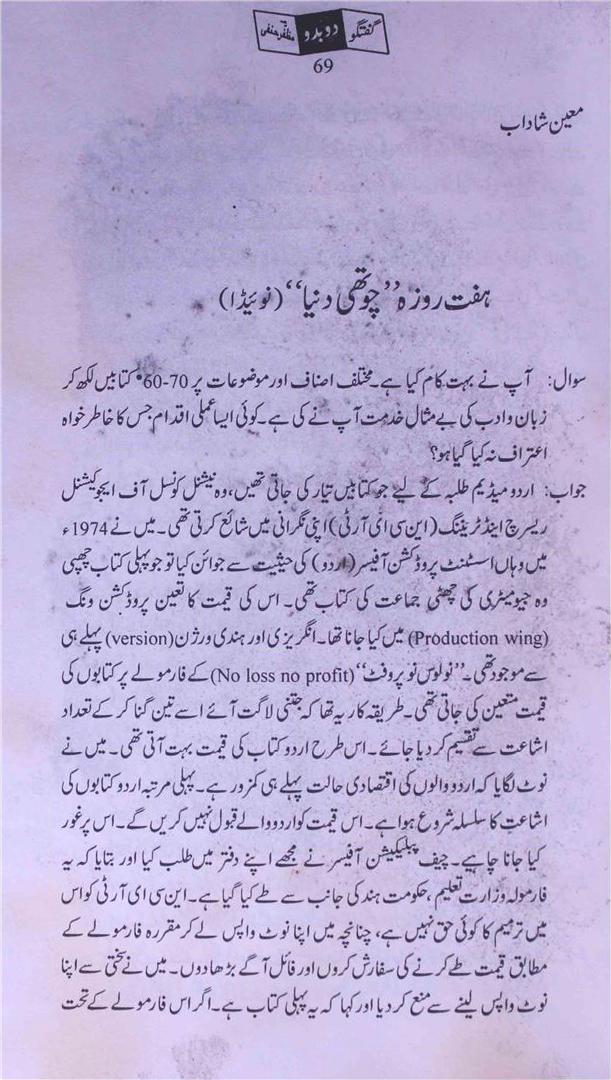 گفتگو دوبدو مظفر حنفی
69
معین شاداب
ہفت روزہ ”چوتھی دنیا“ (نوئیڈا)
سوال: آپ نے بہت کام کیا ہے۔ مختلف اصناف اور موضوعات پر 70-60 کتابیں لکھ کر
زبان و ادب کی بے مثال خدمت آپ نے کی ہے۔ کوئی ایسا عملی اقدام جس کا خاطر خواہ
اعتراف نہ کیا گیا ہو؟
جواب: اردو میڈیم طلبہ کے لیے جو کتابیں تیار کی جاتی تھیں، وہ نیشنل کونسل آف ایجوکیشنل
ریسرچ اینڈ ٹریننگ (این سی ای آر ٹی) اپنی نگرانی میں شائع کرتی تھی۔ میں نے 1974ء
میں وہاں اسسٹنٹ پروڈکشن آفیسر (اردو) کی حیثیت سے جوائن کیا تو جو پہلی کتاب چھپی
وہ جیومیٹری کی چھٹی جماعت کی کتاب تھی۔ اس کی قیمت کا تعین پروڈکشن ونگ
(Production wing) میں کیا جانا تھا۔ انگریزی اور ہندی ورژن (version) پہلے ہی
سے موجود تھی۔ ”نو لوس نو پروفٹ“ (No loss no profit) کے فارمولے پر کتابوں کی
قیمت متعین کی جاتی تھی۔ طریقہ کار یہ تھا کہ جتنی لاگت آئے اسے تین گنا کر کے تعداد
اشاعت سے تقسیم کر دیا جائے۔ اس طرح اردو کتاب کی قیمت بہت آتی تھی۔ میں نے
نوٹ لگایا کہ اردو والوں کی اقتصادی حالت پہلے ہی کمزور ہے۔ پہلی مرتبہ اردو کتابوں کی
اشاعت کا سلسلہ شروع ہوا ہے۔ اس قیمت کو اردو والے قبول نہیں کریں گے۔ اس پر غور
کیا جانا چاہیے۔ چیف پبلیکیشن آفیسر نے مجھے اپنے دفتر میں طلب کیا اور بتایا کہ یہ
فارمولہ وزارت تعلیم، حکومت ہند کی جانب سے طے کیا گیا ہے۔ این سی ای آر ٹی کو اس
میں ترمیم کا کوئی حق نہیں ہے، چنانچہ میں اپنا نوٹ واپس لے کر مقررہ فارمولے کے
مطابق قیمت طے کرنے کی سفارش کروں اور فائل آگے بڑھا دوں۔ میں نے سختی سے اپنا
نوٹ واپس لینے سے منع کر دیا اور کہا کہ یہ پہلی کتاب ہے۔ اگر اس فارمولے کے تحت